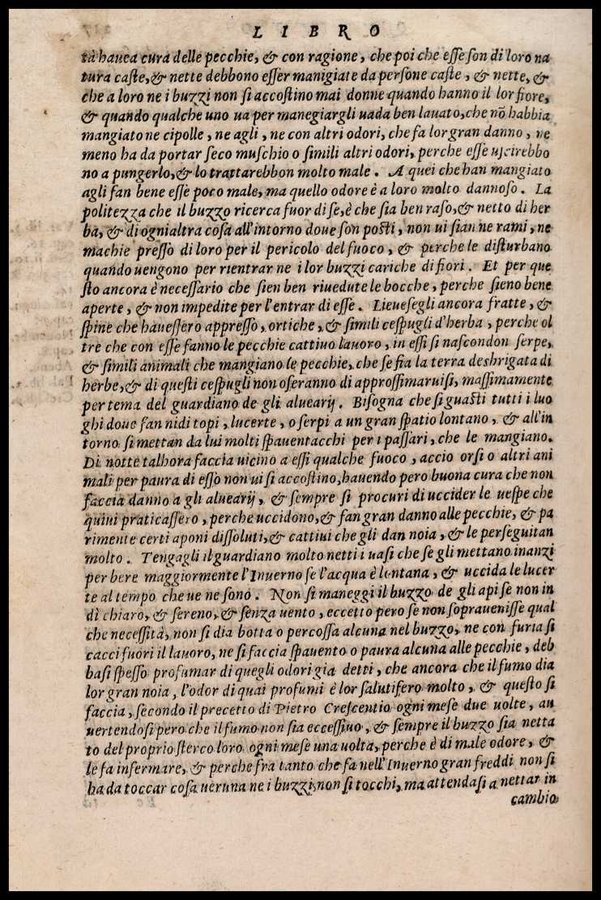 LIBRO
tà hauea cura delle pecchie, & con ragione, che poi che esse son di loro na
tura caste, & nette debbono esser manigiate da persone caste, & nette, &
che a loro ne i buzzi non si accostino mai donne quando hanno il lor fiore,
& quando qualche uno ua per manegiargli uada ben lauato, che nõ habbia
mangiato ne cipolle, ne agli, ne con altri odori, che fa lor gran danno, ne
meno ha da portar seco muschio o simili altri odori, perche esse uscirebbo
no a pungerlo, & lo trattarebbon molto male. A quei che han mangiato
agli fan bene esse poco male, ma quello odore è a loro molto dannoso. La
politezza che il buzzo ricerca fuor di se, è che sia ben raso, & netto di her
ba, & di ognialtra cosa all'intorno doue son posti, non ui sian ne rami, ne
machie presso di loro per il pericolo del fuoco, & perche le disturbano
quando uengono per rientrar ne i lor buzzi cariche di fiori. Et per que
sto ancora è necessario che sien ben riuedute le bocche, perche sieno bene
aperte, & non impedite per l'entrar di esse. Lieuesegli ancora fratte, &
spine che hauessero appresso, ortiche, & simili cespugli d'herba, perche ol
tre che con esse fanno le pecchie cattiuo lauoro, in essi si nascondon serpe,
& simili animali che mangiano le pecchie, che se fia la terra deshrigata di
herbe, & di questi cespugli non oseranno di approssimaruisi, massimamente
per tema del guardiano de gli aluearij. Bisogna che si guasti tutti i luo
ghi doue fan nidi topi, lucerte, o serpi a un gran spatio lontano, & all'in
torno si mettan da lui molti spauentacchi per i passari, che le mangiano.
Di notte talhora faccia uicino a essi qualche fuoco, accio orsi o altri ani
mali per paura di esso non ui si accostino, hauendo pero buona cura che non
faccia danno a gli aluearij, & sempre si procuri di uccider le uespe che
quiui praticassero, perche uccidono, & fan gran danno alle pecchie, & pa
rimente certi aponi dissoluti, & cattiui che gli dan noia, & le perseguitan
molto. Tengagli il guardiano molto netti i uasi che se gli mettano inanzi
per bere maggiormente l'Inuerno se l'acqua è lontana, & uccida le lucer
te al tempo che ue ne sono. Non si maneggi il buzzo de gli api se non in
dì chiaro, & sereno, & senza uento, eccetto pero se non soprauenisse qual
che necessità, non si dia botta o percossa alcuna nel buzzo, ne con furia si
cacci fuori il lauoro, ne si faccia spauento o paura alcuna alle pecchie, deb
basi spesso profumar di quegli odori gia detti, che ancora che il fumo dia
lor gran noia, l'odor di quai profumi è lor salutifero molto, & questo si
faccia, secondo il precetto di Pietro Crescentio ogni mese due uolte, au
uertendosi pero che il fumo non sia eccessiuo, & sempre il buzzo sia netta
to del proprio sterco loro ogni mese una uolta, perche è di male odore, &
le fa infermare, & perche fra tanto che fa nell'Inuerno gran freddi non si
ha da toccar cosa ueruna ne i buzzi, non si tocchi, ma attendasi a nettar in
cambio